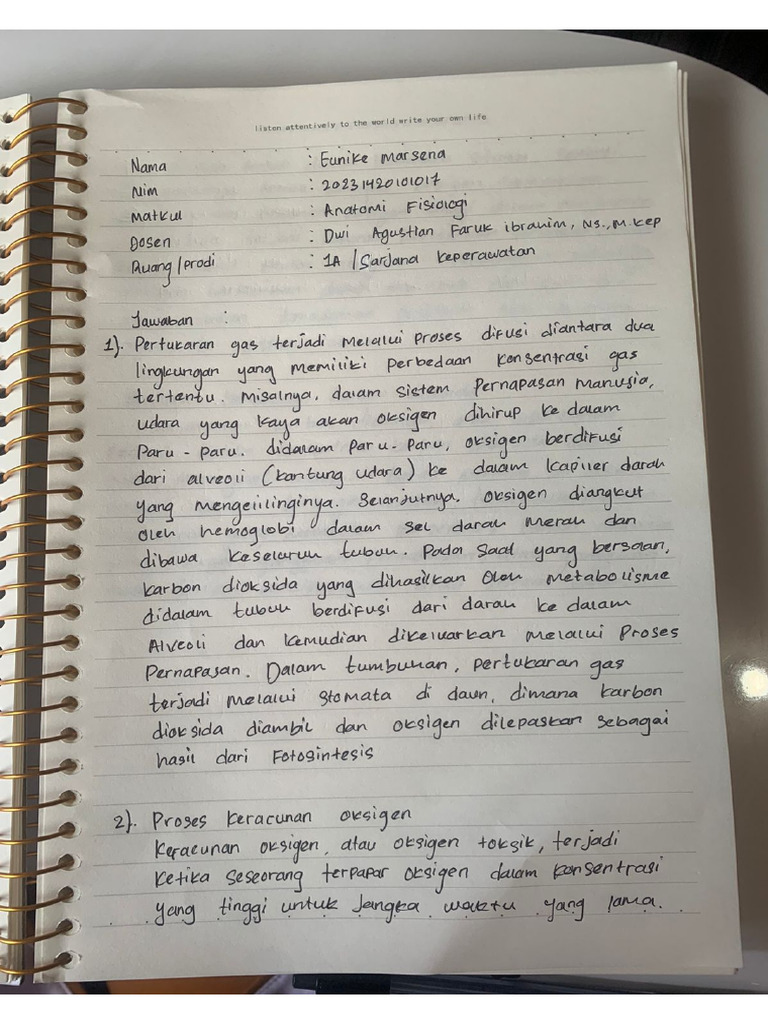 listen attentively to the world write your own life
Nama : Eunike Marsena
Nim : 20231420101017
Matkul : Anatomi Fisiologi
Dosen : Dwi Agustian Faruk Ibrahim, Ns., M.Kep
Ruang/Prodi : 1A / Sarjana Keperawatan
Jawaban :
1). Pertukaran gas terjadi melalui proses difusi diantara dua
lingkungan yang memiliki perbedaan konsentrasi gas
tertentu. Misalnya, dalam sistem pernapasan manusia,
udara yang kaya akan oksigen dihirup ke dalam
paru-paru. didalam paru-paru, oksigen berdifusi
dari alveoli (kantung udara) ke dalam kapiler darah
yang mengelilinginya. Selanjutnya. oksigen diangkut
oleh hemoglobi dalam sel darah merah dan
dibawa keseluruh tubuh. Pada saat yang bersaan,
karbon dioksida yang dihasilkan oleh metabolisme
didalam tubuh berdifusi dari darah ke dalam
Alveoli dan kemudian dikeluarkan melalui proses
Pernapasan. Dalam tumbuhan, pertukaran gas
terjadi melalui stomata di daun, dimana karbon
dioksida diambil dan oksigen dilepaskan sebagai
hasil dari Fotosintesis
2). Proses keracunan oksigen
Keracunan oksigen, atau oksigen toksik, terjadi
ketika seseorang terpapar oksigen dalam konsentrasi
yang tinggi untuk jangka waktu yang lama.